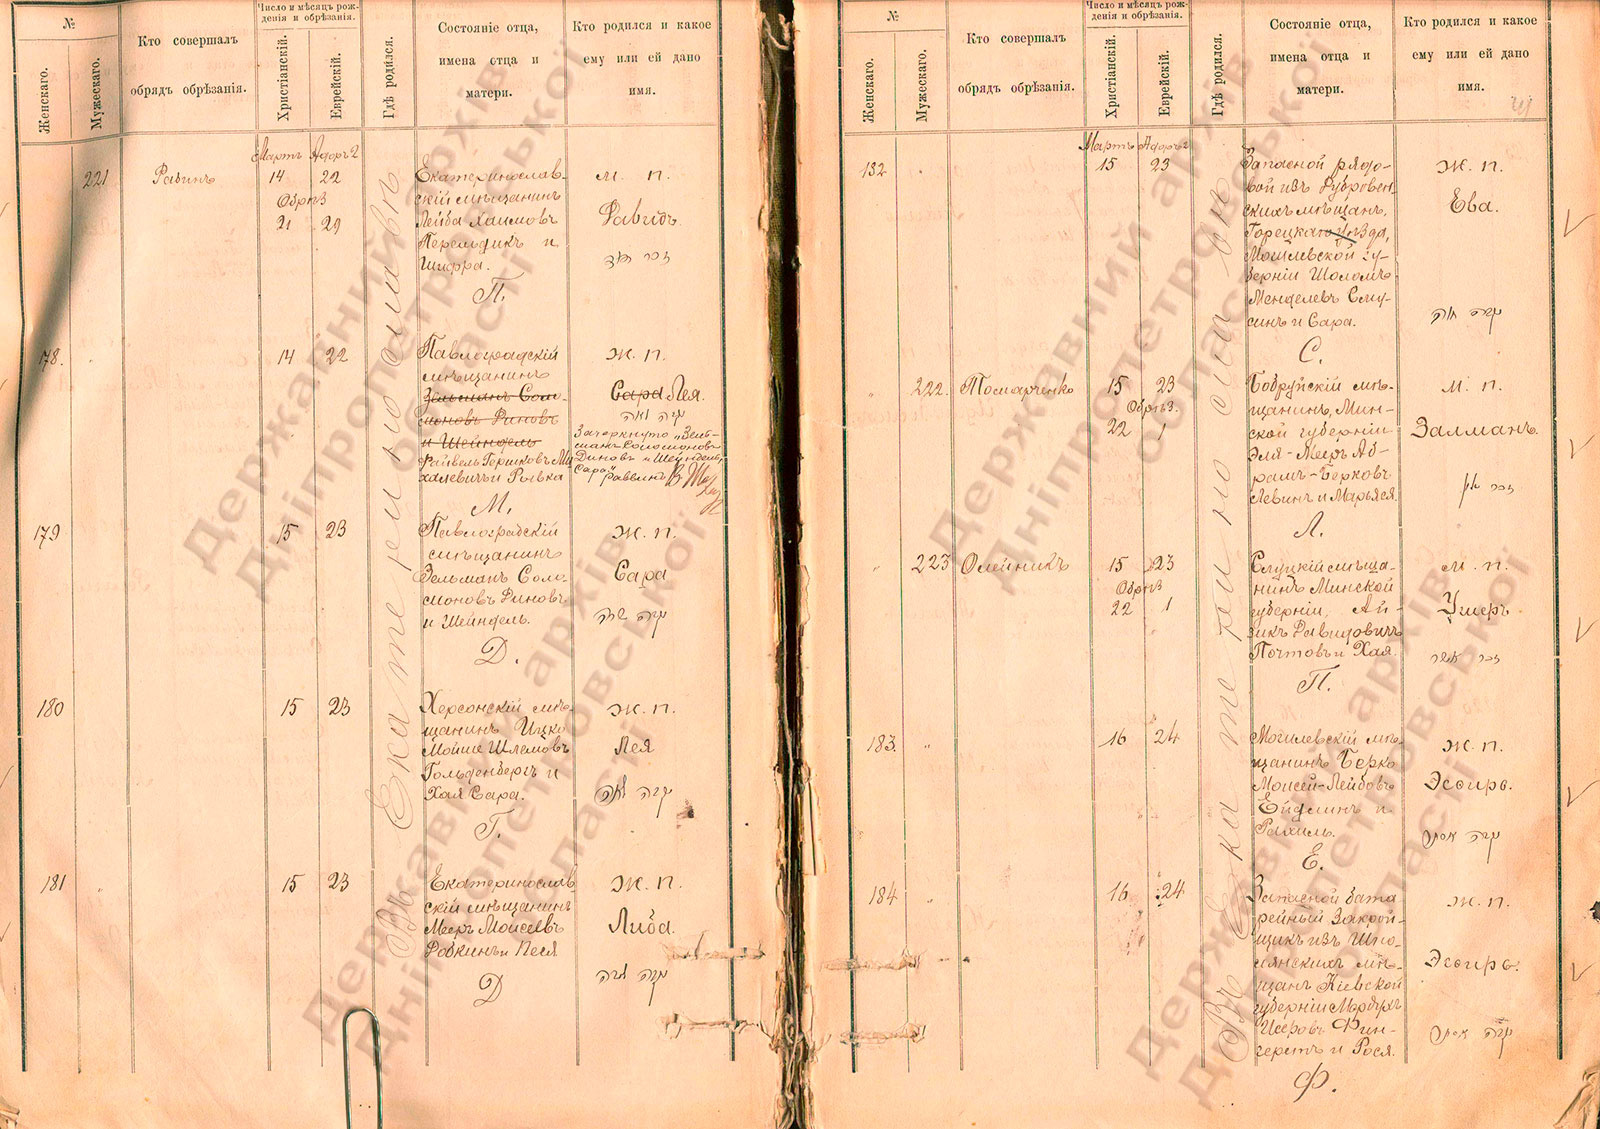 №
Женскаго.
Мужескаго.
Кто совершалъ
обрядъ обрѣзанія.
Число и мѣсяцъ рож-
денія и обрѣзанія.
Христіанскій.
Еврейскій.
Гдѣ родился.
Состояніе отца,
имена отца и
матери.
Кто родился и какое
ему или ей дано
имя.
Мартъ Адоръ 2
Въ Екатеринославѣ
221 Рабинъ 14 22
Обрѣз
21 29
Екатеринослав-
скій мѣщанинъ
Лейба Хаимовъ
Перельдикъ и
Шифра.
П.
м. п.
Давидъ.
178. 14 22
Павлоградскій
мѣщанинъ
Зельманъ Соло-
моновъ Диновъ
и Шейндель
Файвель Гершковъ Ми
халевичъ и Рывка
М.
ж. п.
Сара Лея.
Зачеркнуто „Зель-
манъ Соломоновъ
Диновъ и Шейндель,
Сара" раввинъ
179 15 23
Павлоградскій
мѣщанинъ
Зельманъ Соло-
моновъ Диновъ
и Шейндель.
Д.
ж. п.
Сара
180 15 23
Херсонскій мѣ-
щанинъ Ицко
Мойше Шлемовъ
Гольденбергъ и
Хая Сара.
Г.
ж. п.
Лея
181 15 23
Екатеринослав
скій мѣщанинъ
Меер Моисеевъ
и Песя
Д
ж. п.
Либа.
№
Женскаго.
Мужескаго.
Кто совершалъ
обрядъ обрѣзанія.
Число и мѣсяцъ рож-
денія и обрѣзанія.
Христіанскій.
Еврейскій.
Гдѣ родился.
Состояніе отца,
имена отца и
матери.
Кто родился и какое
ему или ей дано
имя.
Мартъ Адоръ 2
Въ Екатеринославѣ
132 15 23
Запасной рядо-
вой изъ Дубровен
скихъ мѣщанъ,
Горецкаго уѣзда,
Могилевской гу-
берніи Шоломъ
Менделевъ Слу-
синъ и Сара.
С.
ж. п.
Ева.
222. Томарченко 15 23
Обрѣз.
22 1
Бобруйскій мѣ-
щанинъ, Мин-
ской губерніи
Эля-Меер Аб-
рамъ-Берковъ
Левинъ и Марьяся.
Л.
м. п.
Залманъ.
223 Олейникъ 15 23
Обрѣз
22 1
Слуцкій мѣща-
нинъ Минской
губерніи, Ай-
зикъ Давидовичъ
Почтовъ и Хая.
П.
м. п.
Ушеръ
183. 16 24
Могилевскій мѣ-
щанинъ Берко
Моисей-Лейбовъ
Ейдлинъ и
Рахиль.
Е.
ж. п.
Эсѳирь.
184 16 24
Запасной бата
рейный Закрой-
щикъ изъ Шпо-
лянскихъ мѣ-
щанъ Кіевской
губерніи Мордухъ
Исеровъ Фин-
геретъ и Рося.
Ф.
ж. п.
Эсѳирь.
Державний архів
Дніпропетровської
області
Державний архів
Дніпропетровської
області
Державний архів
Дніпропетровської
області
Державний архів
Дніпропетровської
області